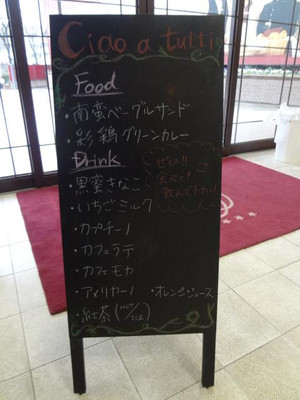 Ciao a tutti
Food
・南蛮ベーグルサンド
・彩鶏グリーンカレー
Drink
・黒蜜きなこ
・いちごミルク
・カプチーノ
・カフェラテ
・カフェモカ
・アメリカーノ ・オレンジジュース
・紅茶(HOT/ICE)
ぜひ!!
食べて!
飲んで下さい!